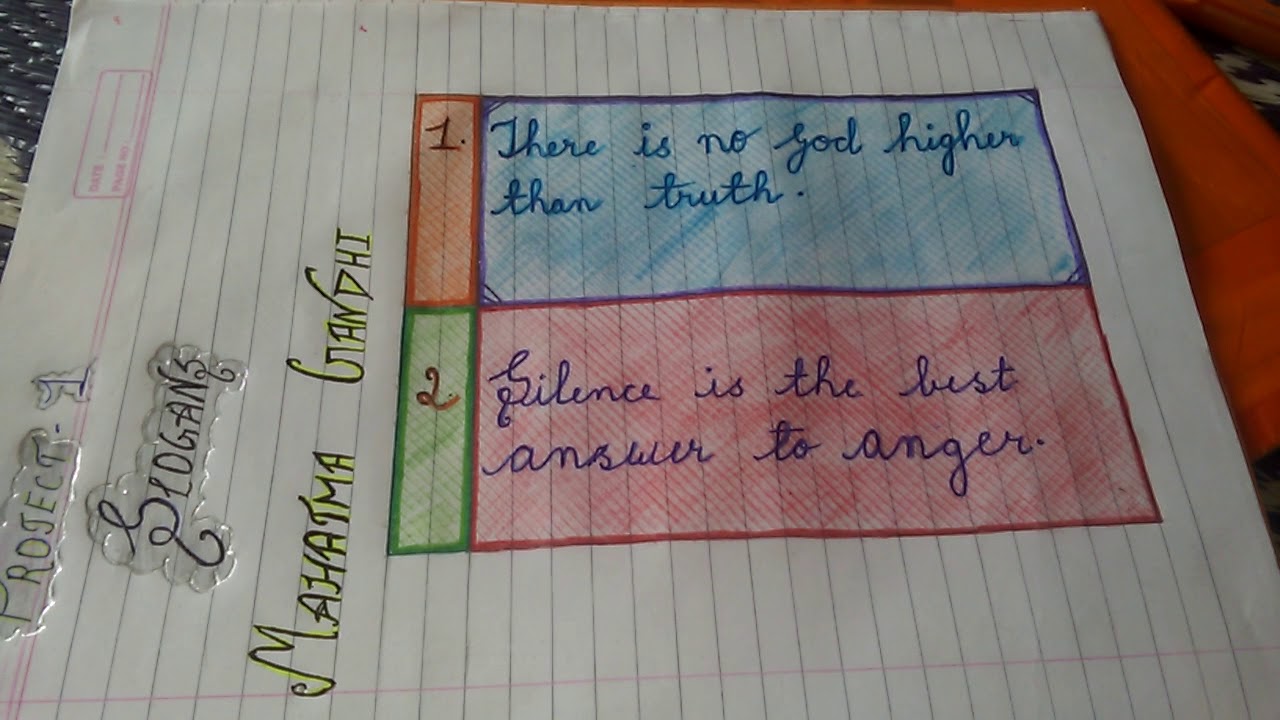 PROJECT-1
SLOGANS
MAHATMA GANDHI
DATE :
PAGE NO. :
1. There is no God higher
than truth.
2. Silence is the best
answer to anger.